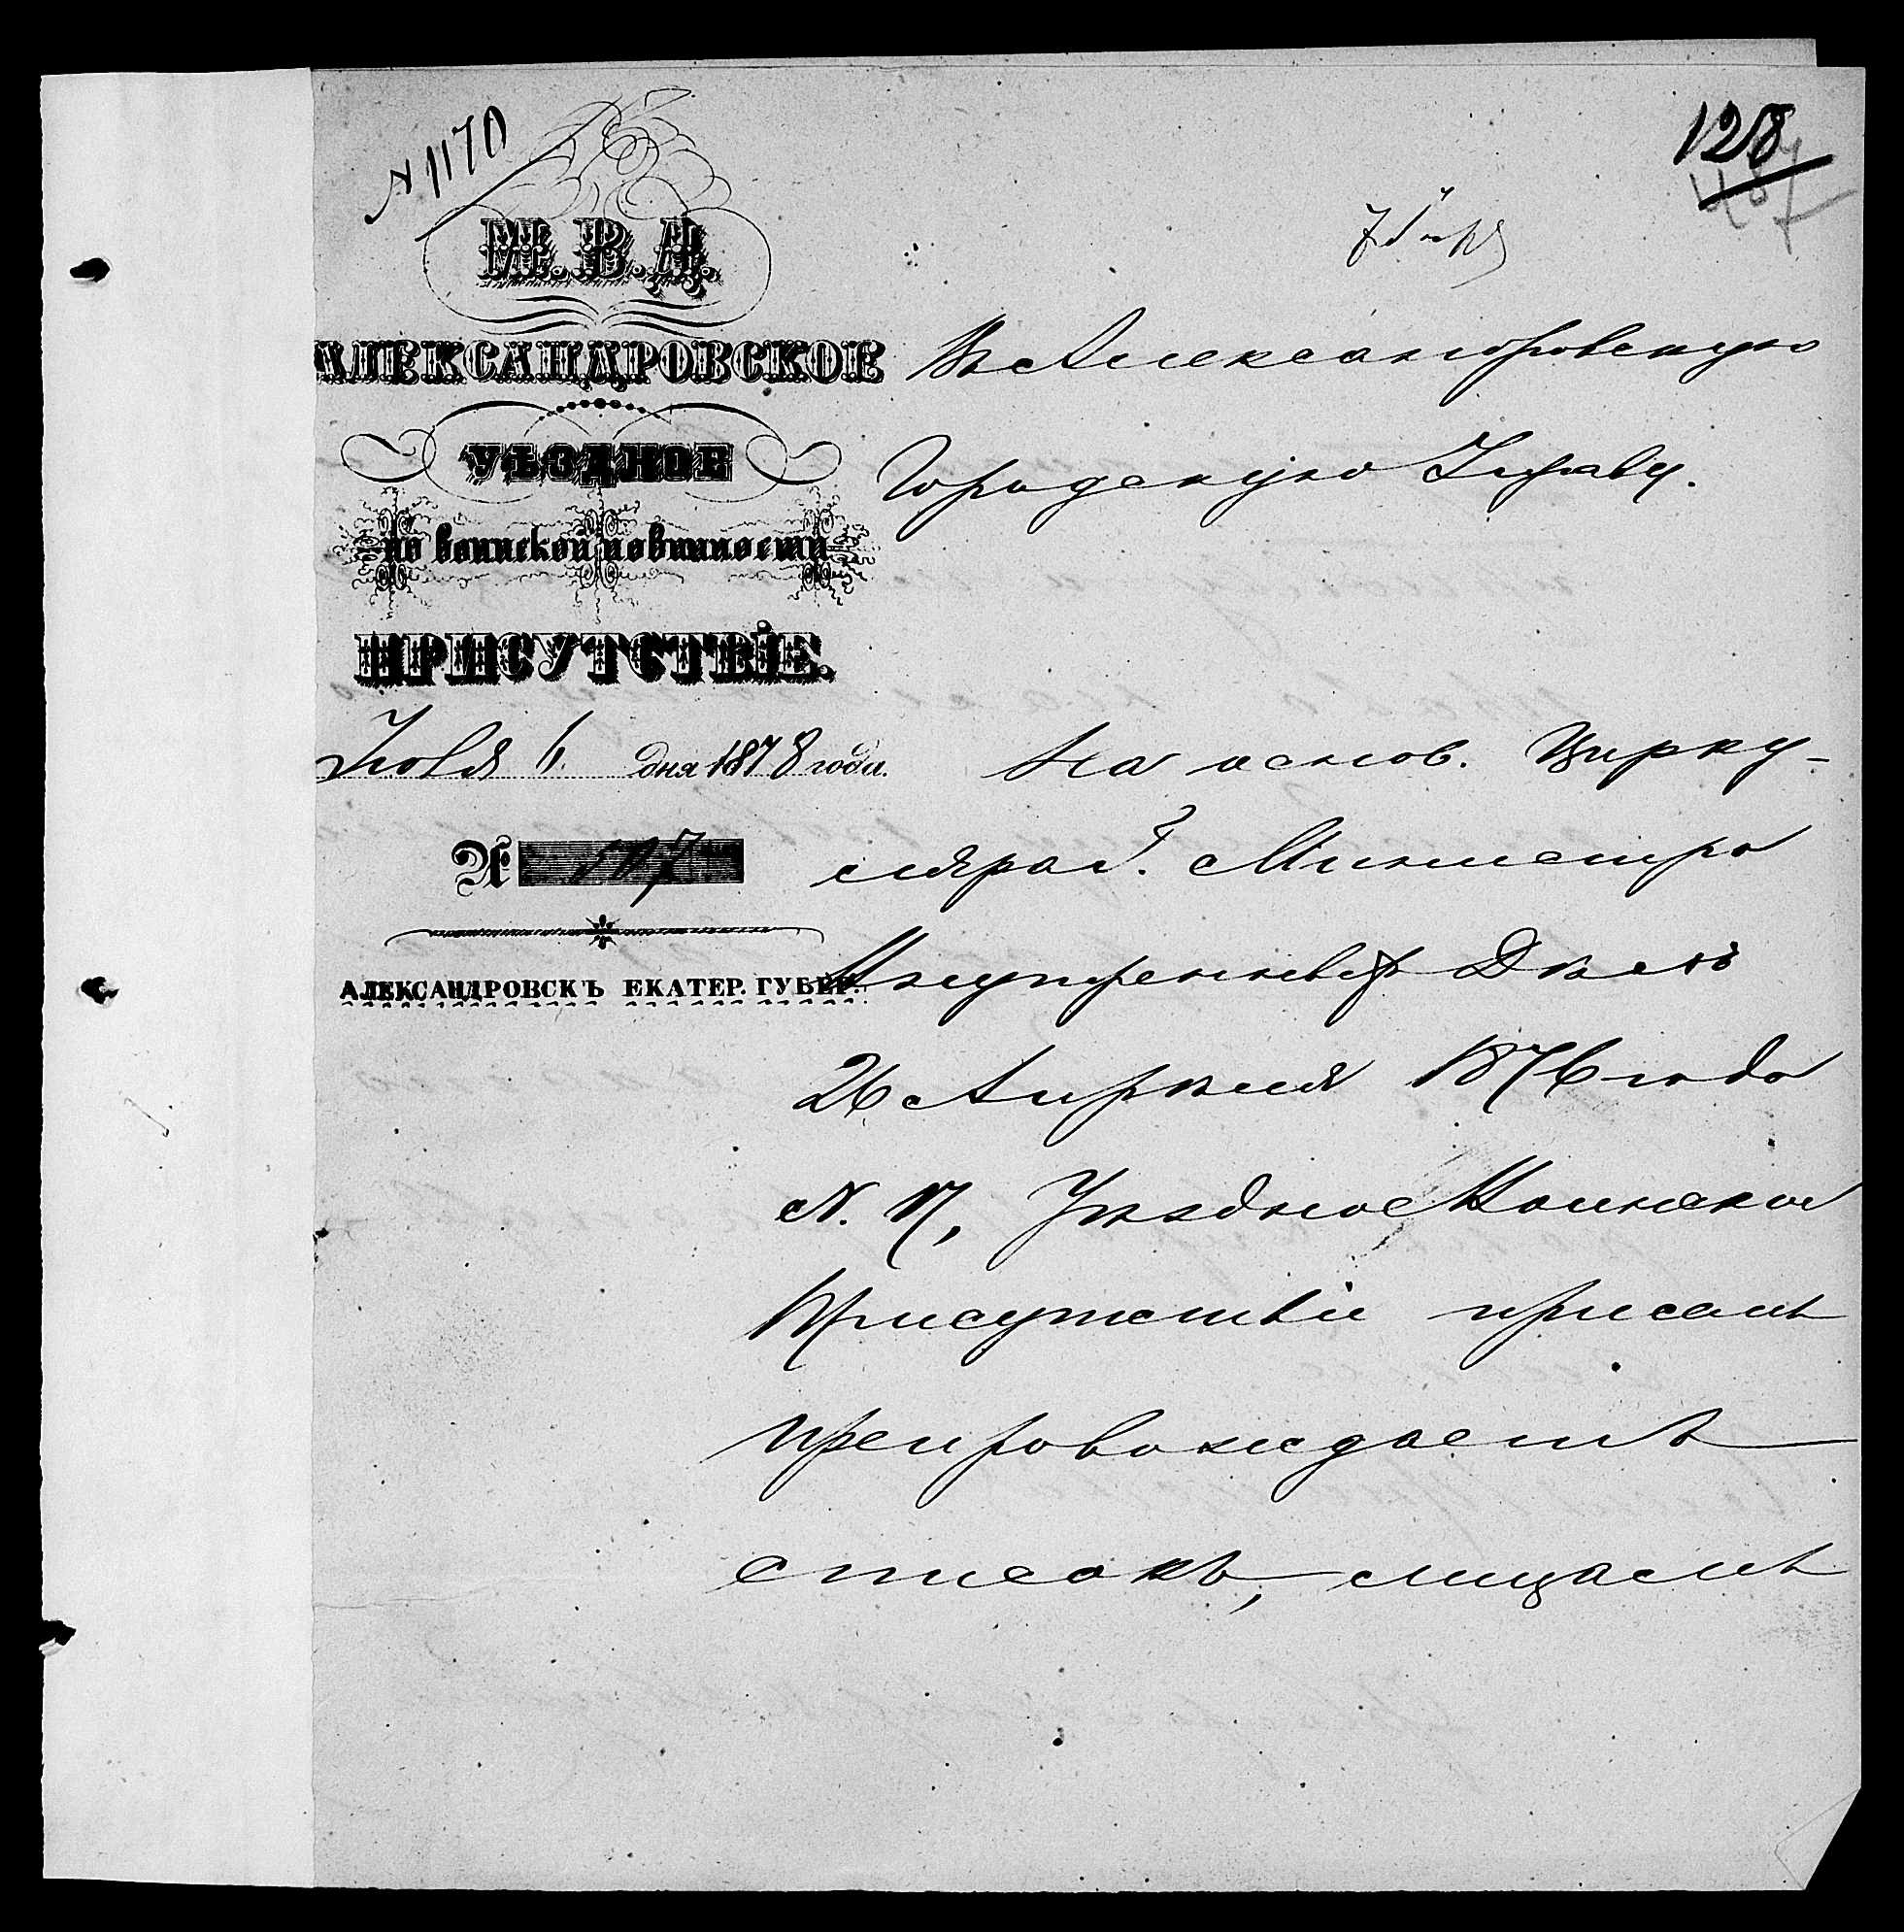 N 1170
128
М.В.Д.
АЛЕКСАНДРОВСКОЕ
УѢЗДНОЕ
по воинской повинности
ПРИСУТСТВІЕ.
Іюля 6 дня 1878 года.
№ 507
АЛЕКСАНДРОВСКЪ ЕКАТЕР. ГУБЕР.
Въ Александровскую
Городскую Управу.
На основ. Цирку-
ляра Г. Министра
Внутреннихъ Дѣлъ
26 Апрѣля 1876 года
N. 17, Уѣздное Воинское
Присутствіе присемъ
препровождаетъ
списокъ, лицамъ